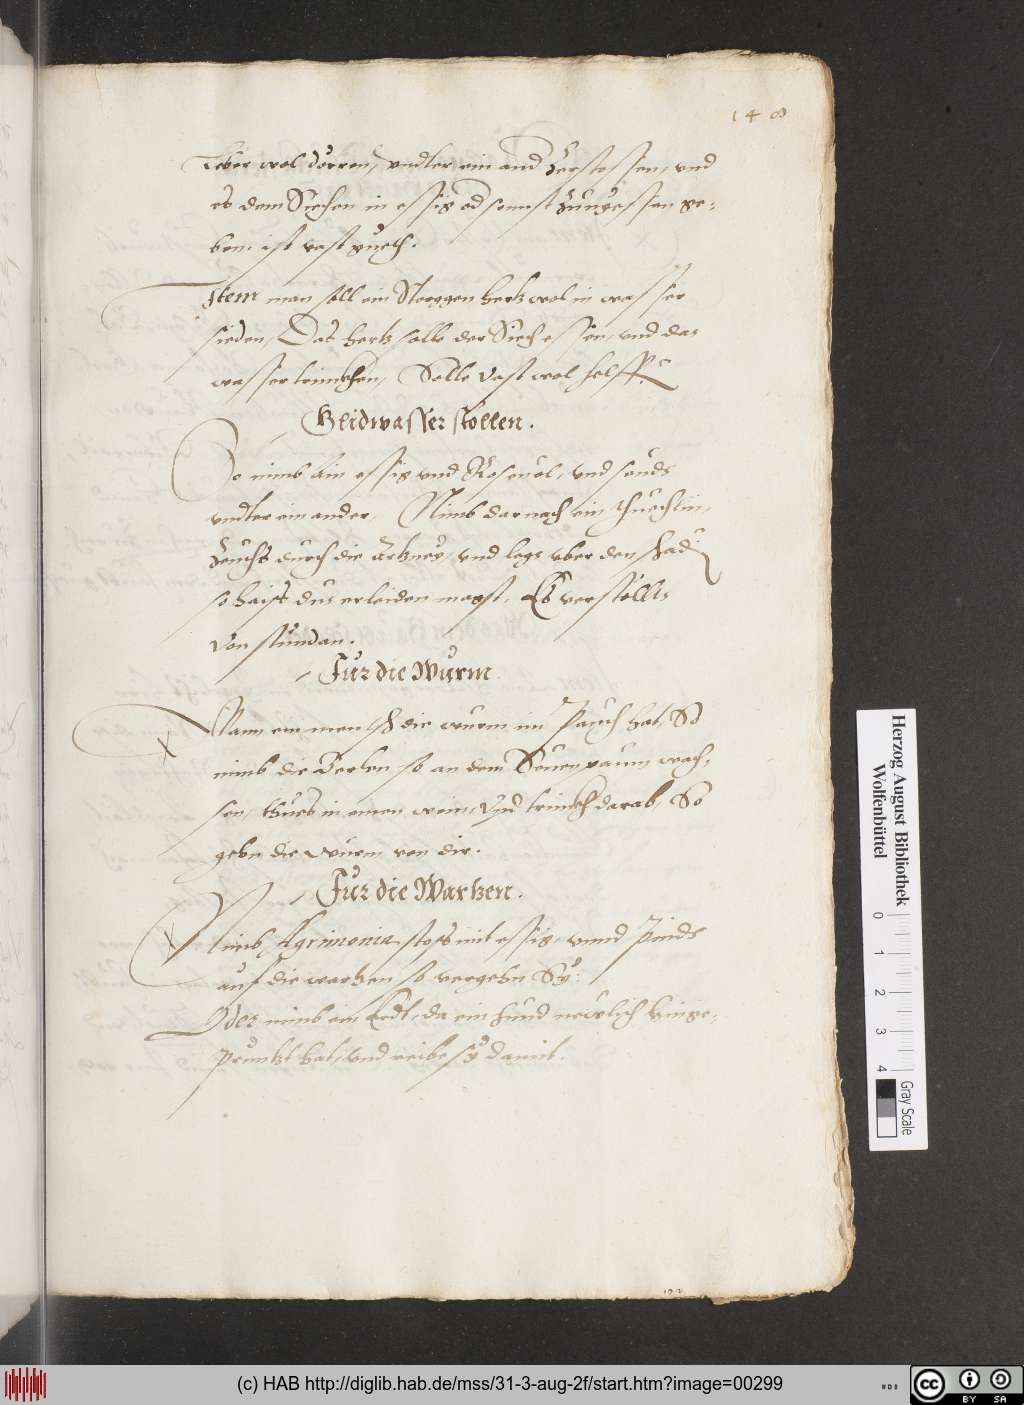 148
Leber wol dörren, vndter ein and zerstossen, vnd
es dem Siechen in essig od sonnst zunngessen ge-
ben. ist vast gueth.
Item man soll ein Storggen hertz wol in wasser
sieden, Das hertz solle der Siech essen, vnd das
wasser trinckhen, Solle vast wol helff
Glidwasser stöllen.
So nimb ein essig vnd Rosenöl, vnd seuds
vndter ein ander, Nimb darnach ein thuechlin,
zeuchs durch die Artzney, vnd legs vber den schad
so haiss dus erleiden magst. Es verstöllts
von stundan.
Für die Würm
Wann ein mensch die wurm im Pauch hat, So
nimb die so an dem Seuenpaum wach-
sen, thues in einen wein, Vnd trinckh darab, So
gehn die würm von dir.
Für die Wartzen.
Nimb Agrimonia stoss mit essig, vnnd Pinds
auf die wartzen so vergehn Sy.
Oder nimb ein Erdt, da ein hund newlich hinge-
prüntzt hat, vnd reibe sy damit.
Herzog August Bibliothek
Wolfenbüttel
0 1 2 3 4
Gray Scale
(c) HAB http://diglib.hab.de/mss/31-3-aug-2f/start.htm?image=00299
cc BY SA